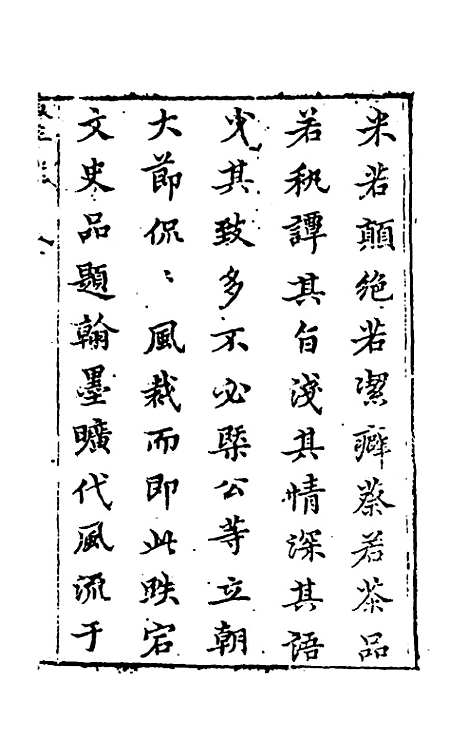 米若顛絕若潔癖蔡若茶品
若秇譚其旨淺其情深其語
曳其致多不必槩公等立朝
大節侃〻風裁而即此跌宕
文史品題翰墨曠代風流于